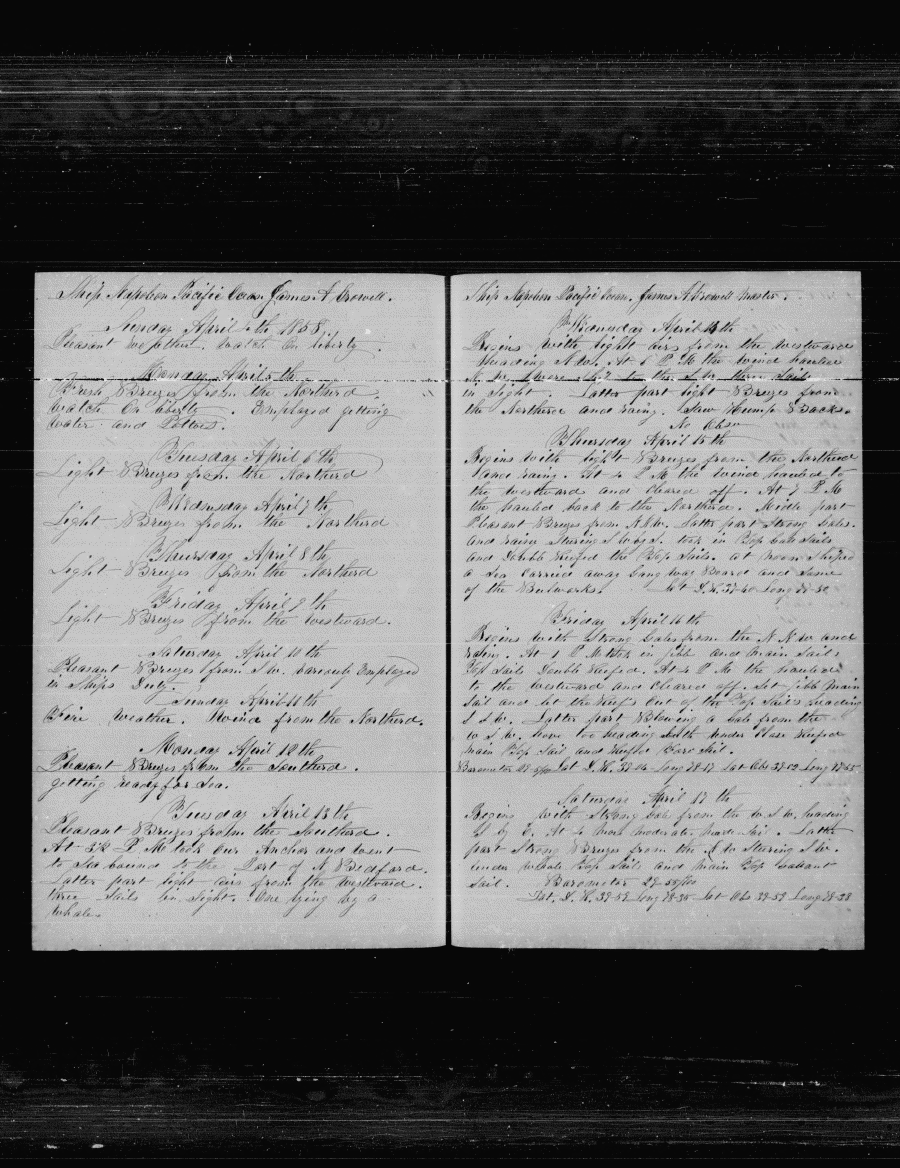 Ship Napoleon Pacific Ocean James A Crowell.
Sunday April 4th 1858.
Pleasant Weather. Watch On liberty.
Monday April 5th
Fresh Breezes from the Northerd.
Watch On liberty. Employed getting
Water and Potatoes.
Tuesday April 6th
Light Breezes from the Northerd
Wednesday April 7th
Light Breezes from the Northerd
Thursday April 8th
Light Breezes from the Northerd
Friday April 9th
Light Breezes from the Westward.
Saturday April 10th
Pleasant Breezes from S W. Employed
in Ships Duty.
Sunday April 11th
Fine Weather. Wind from the Northerd.
Monday April 12th
Pleasant Breezes from the Southerd
getting ready for Sea.
Tuesday April 13th
Pleasant Breezes from the Southerd.
At P M took Our Anchor and went
to Sea bound to the Port of N Bedford.
Latter part light airs from the Westward.
three Sails in Sight. One lying by a
Whale.
Ship Napoleon Pacific Ocean. James A Crowell Master.
Wednesday April 14th
Begins with light airs from the Westward
Heading At 6 P M the wind hauled
to the S W three Sails
in Sight. Latter part light Breezes from
the Northerd and rainy. Saw Hump Backs.
No Obsn
Thursday April 15th
Begins with light Breezes from the Northerd
and rainy. At 4 P M the wind hauled to
the Westward and Cleared off. At 7 P M
the hauled back to the Northerd. Middle part
Pleasant Breezes from N.N.W. Latter part Strong Gales.
and rainy Stering took in Top Gale Sails
and Double Reefed the Top Sails. at noon Shiped
a Sea Carried away Gang way Board and Some
of the Bulworks. Lat D. R. Long
Friday April 16th
Begins with Strong Gales from the N N W and
rainy. At 1 P M took in jibb and main Sail.
Top Sails Double Reefed. At 4 P M the hauled
to the Westward and Cleared off. Set jibb main
Sail and let the Reefs Out of the Top Sails heading
S S W. Latter part Blowing a Gale from the
W S W. hove too heading South under Close Reefed
main Top Sail and Reefed Fore Sail.
Barometer Lat D. R. Long Lat Obs Long
Saturday April 17th
Begins with Strong Gale from the W S W heading
S by E. At 4 more moderate made Sail. Latter
part Strong Breezes from the Stering S W.
under whole Top Sails and main Top Galant
Sail. Barometer
Lat. D. R. Long Lat Obs Long